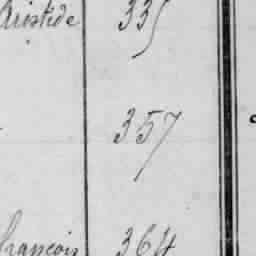 Aristide 335
357
François 364